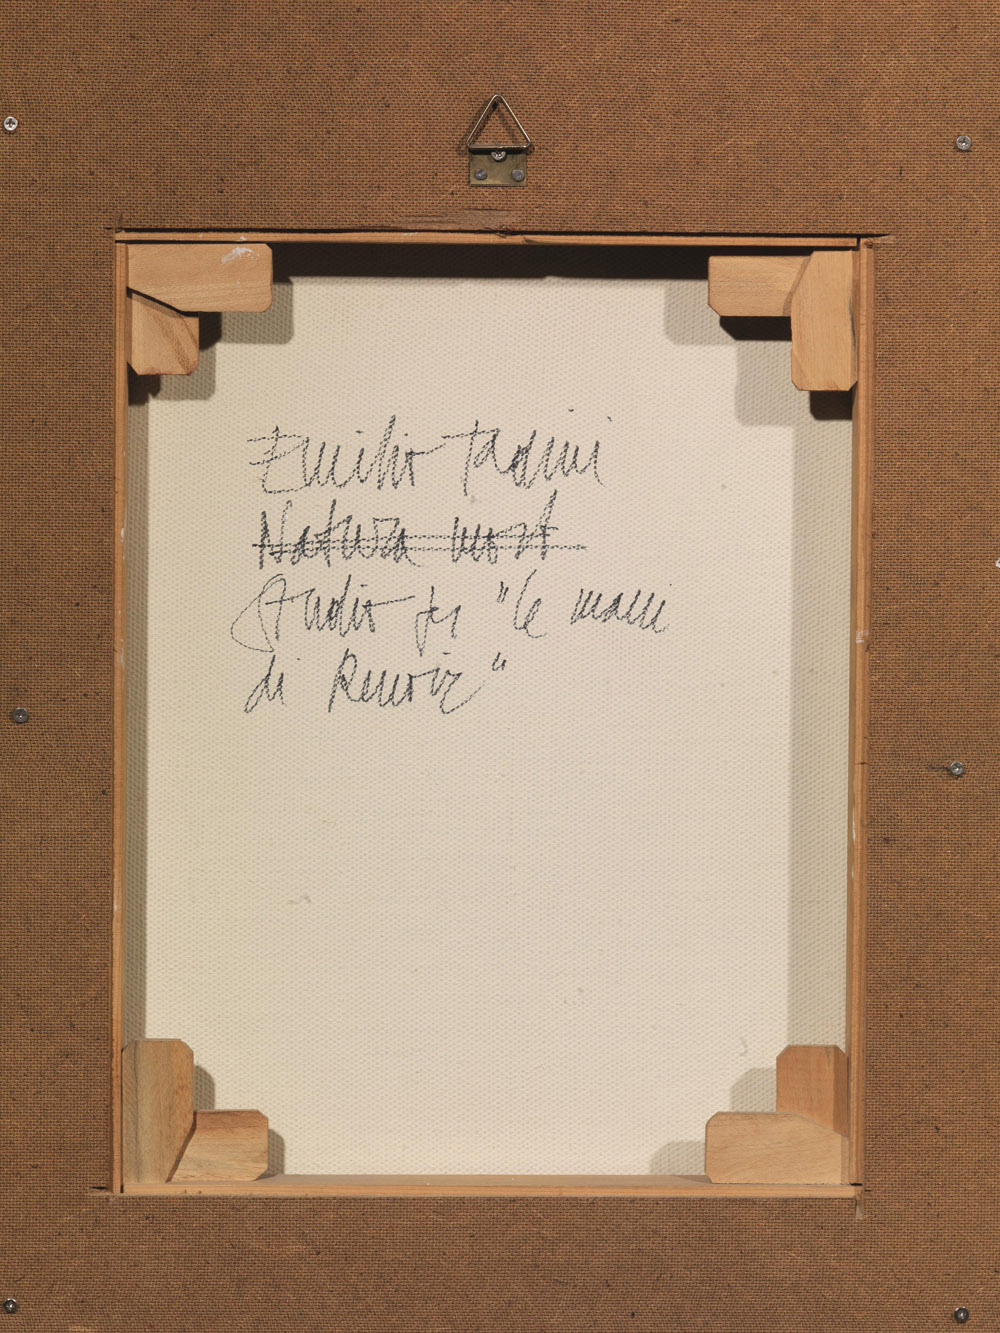 Emilio Tadini
Natura mort
Studio per "le mani
di Renoir"